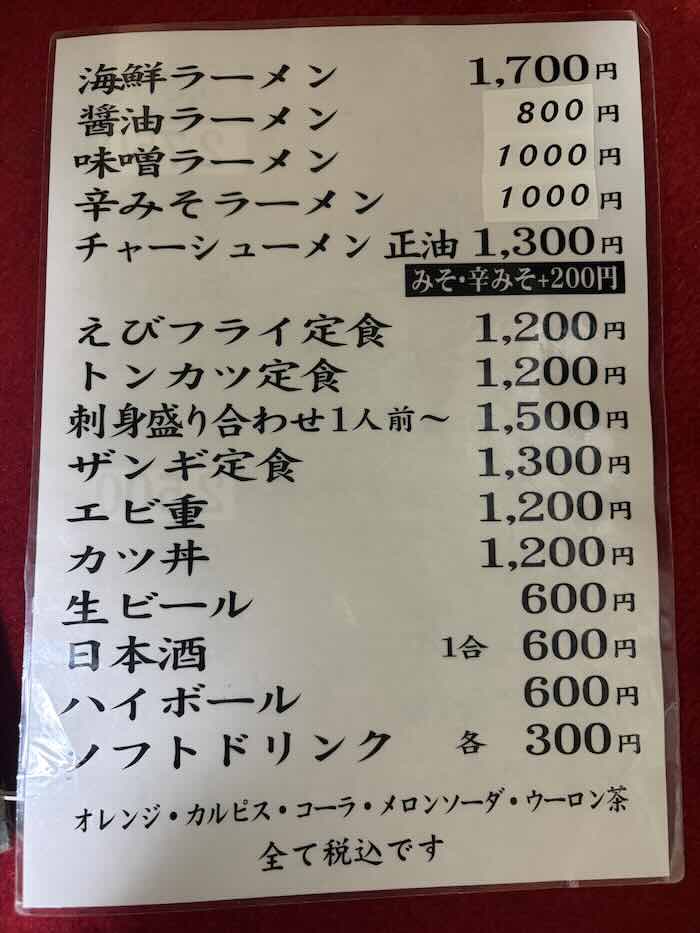 海鮮ラーメン 1,700円
醤油ラーメン 800円
味噌ラーメン 1000円
辛みそラーメン 1000円
チャーシューメン 正油 1,300円
みそ・辛みそ+200円
えびフライ定食 1,200円
トンカツ定食 1,200円
刺身盛り合わせ1人前～ 1,500円
ザンギ定食 1,300円
エビ重 1,200円
カツ丼 1,200円
生ビール 600円
日本酒 1合 600円
ハイボール 600円
ソフトドリンク 各 300円
オレンジ・カルピス・コーラ・メロンソーダ・ウーロン茶
全て税込です